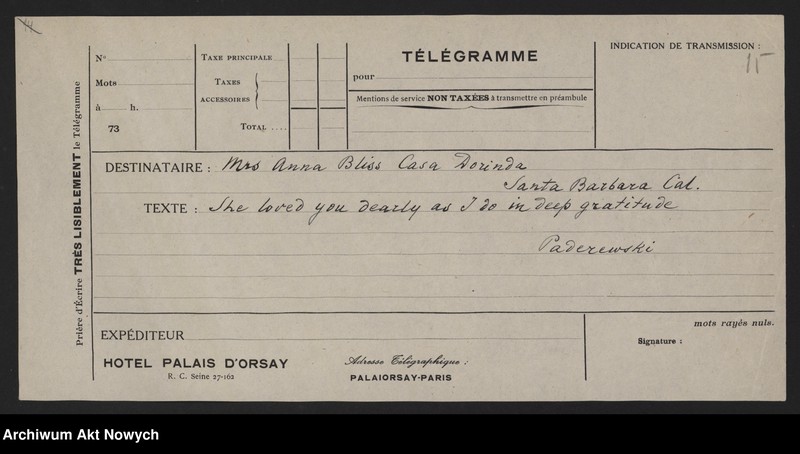 44
N°
Mots
à h.
73
TAXE PRINCIPALE
TAXES
ACCESSOIRES
TOTAL ....
TÉLÉGRAMME
pour
Mentions de service NON TAXÉES à transmettre en préambule
INDICATION DE TRANSMISSION :
15
Prière d'Écrire TRÈS LISIBLEMENT le Télégramme
DESTINATAIRE : Mrs Anna Bliss Casa Dorinda
Santa Barbara Cal.
TEXTE : She loved you dearly as I do in deep gratitude
Paderewski
EXPÉDITEUR
HOTEL PALAIS D'ORSAY
R. C. Seine 27-162
Adresse Télégraphique :
PALAIORSAY-PARIS
mots rayés nuls.
Signature :
Archiwum Akt Nowych